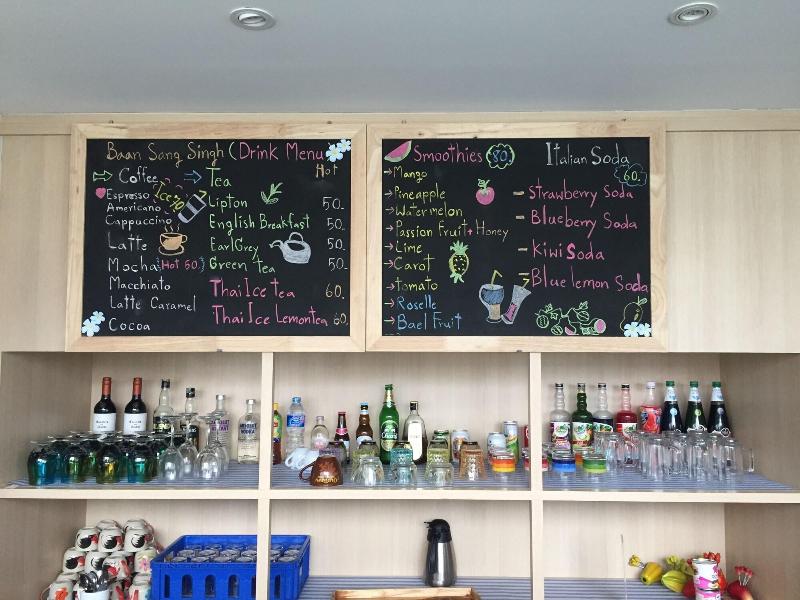 Baan Sang Singh (Drink Menu
Hot
Coffee
Espresso
Americano
Cappuccino
Latte
Mocha
Macchiato
Latte Caramel
Cocoa
Hot 50.
Tea
Lipton 50.
English Breakfast 50.
Earl Grey 50.
Green Tea 50.
Thai Ice tea 60.
Thai Ice Lemontea 60.
Smoothies 80.
Mango
Pineapple
Watermelon
Passion Fruit + Honey
Lime
Carot
tomato
Roselle
Bael Fruit
Italian Soda
60.
Strawberry Soda
Blueberry Soda
Kiwi Soda
Blue lemon Soda